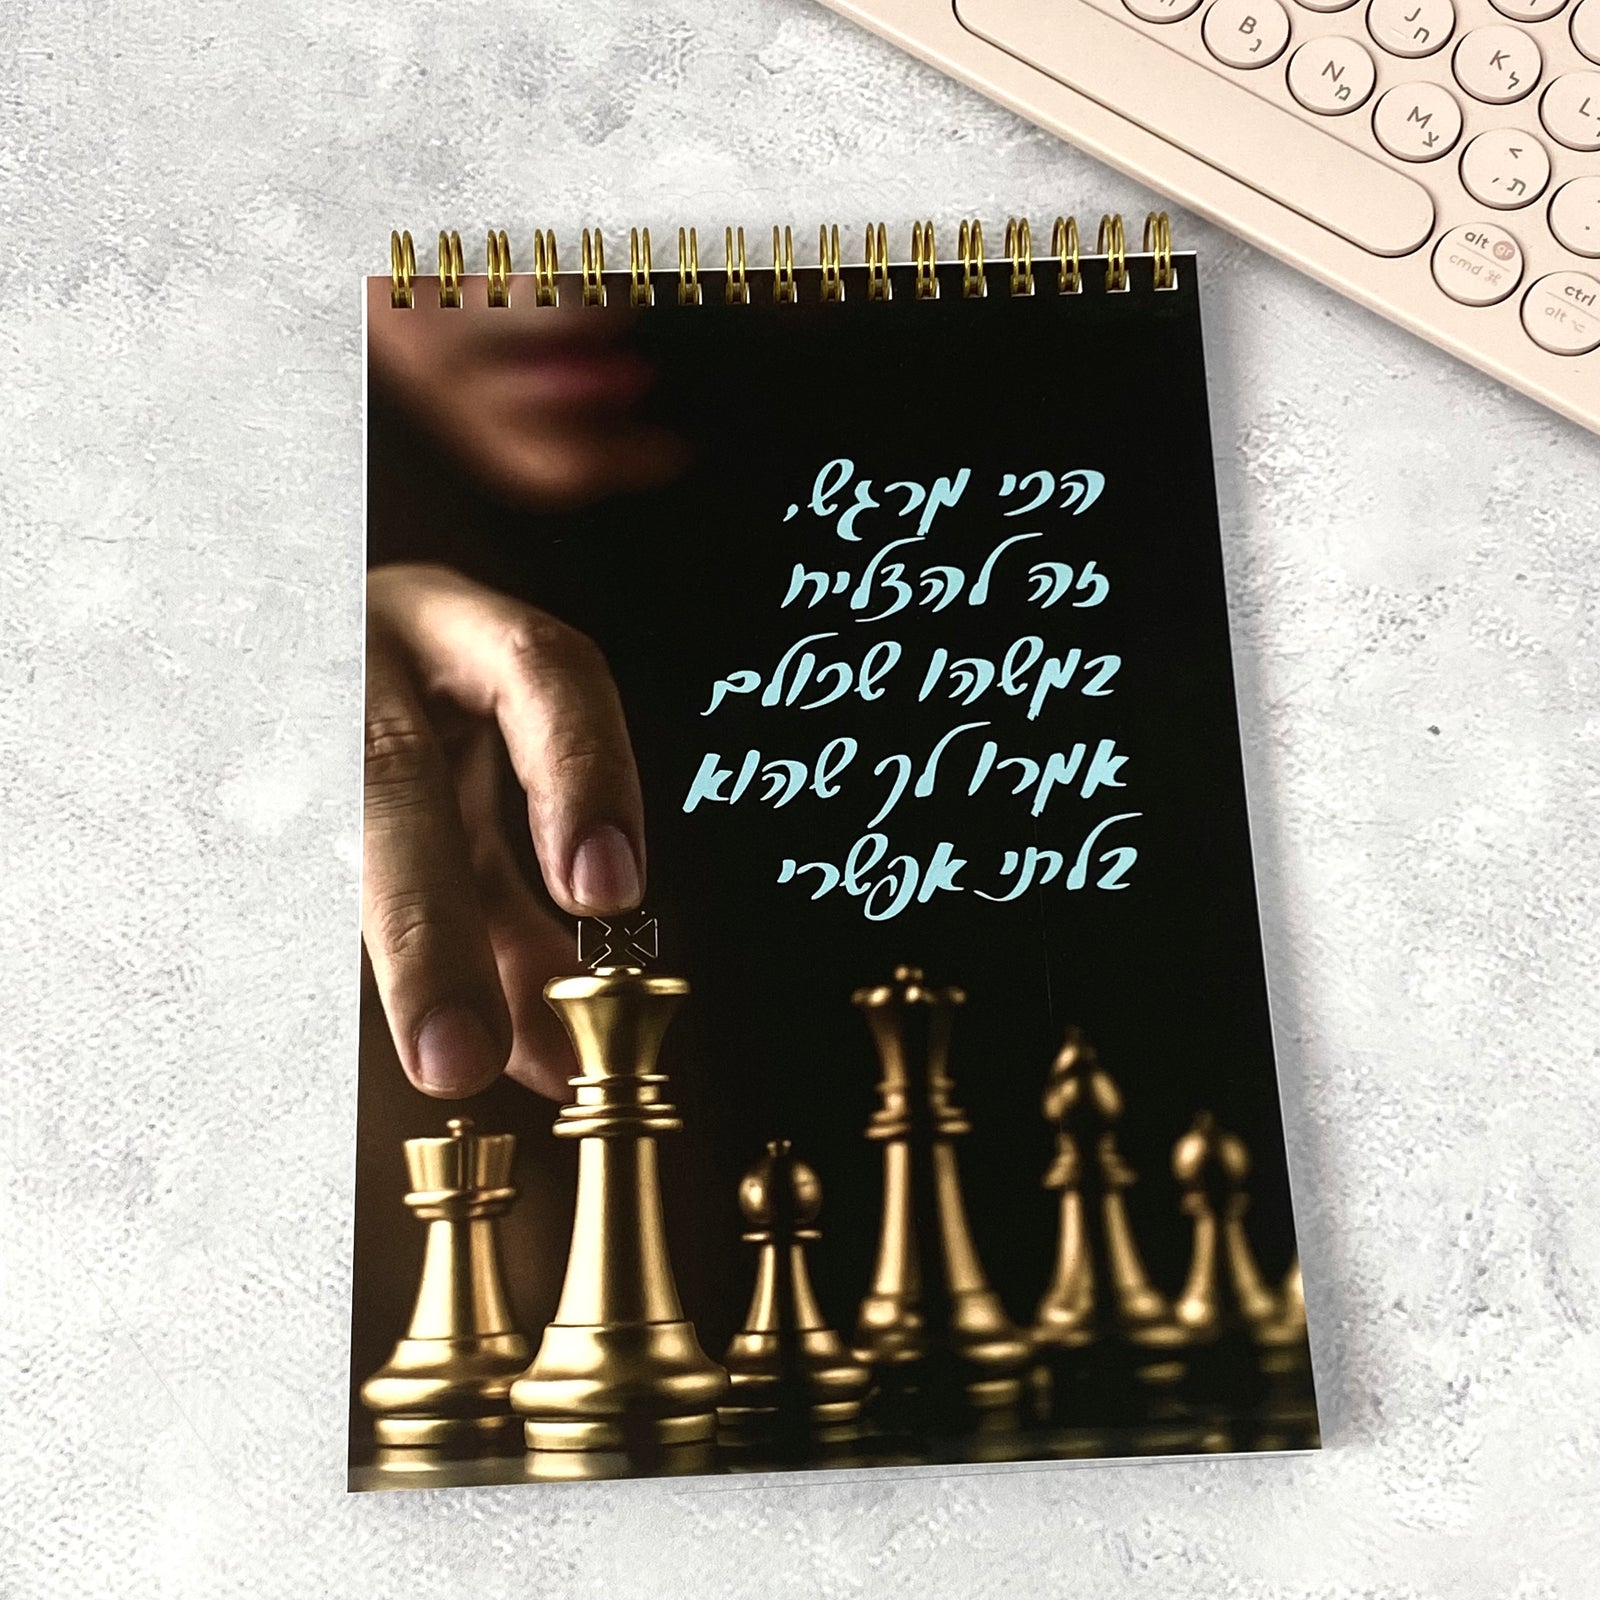 הכי מרגש,
זה להצליח
במשהו שכולם
אמרו לך שהוא
בלתי אפשרי
J ח
B נ
K ל
N מ
L
M צ
< , ת
alt gr
cmd ⌘
ctrl
alt ⌥